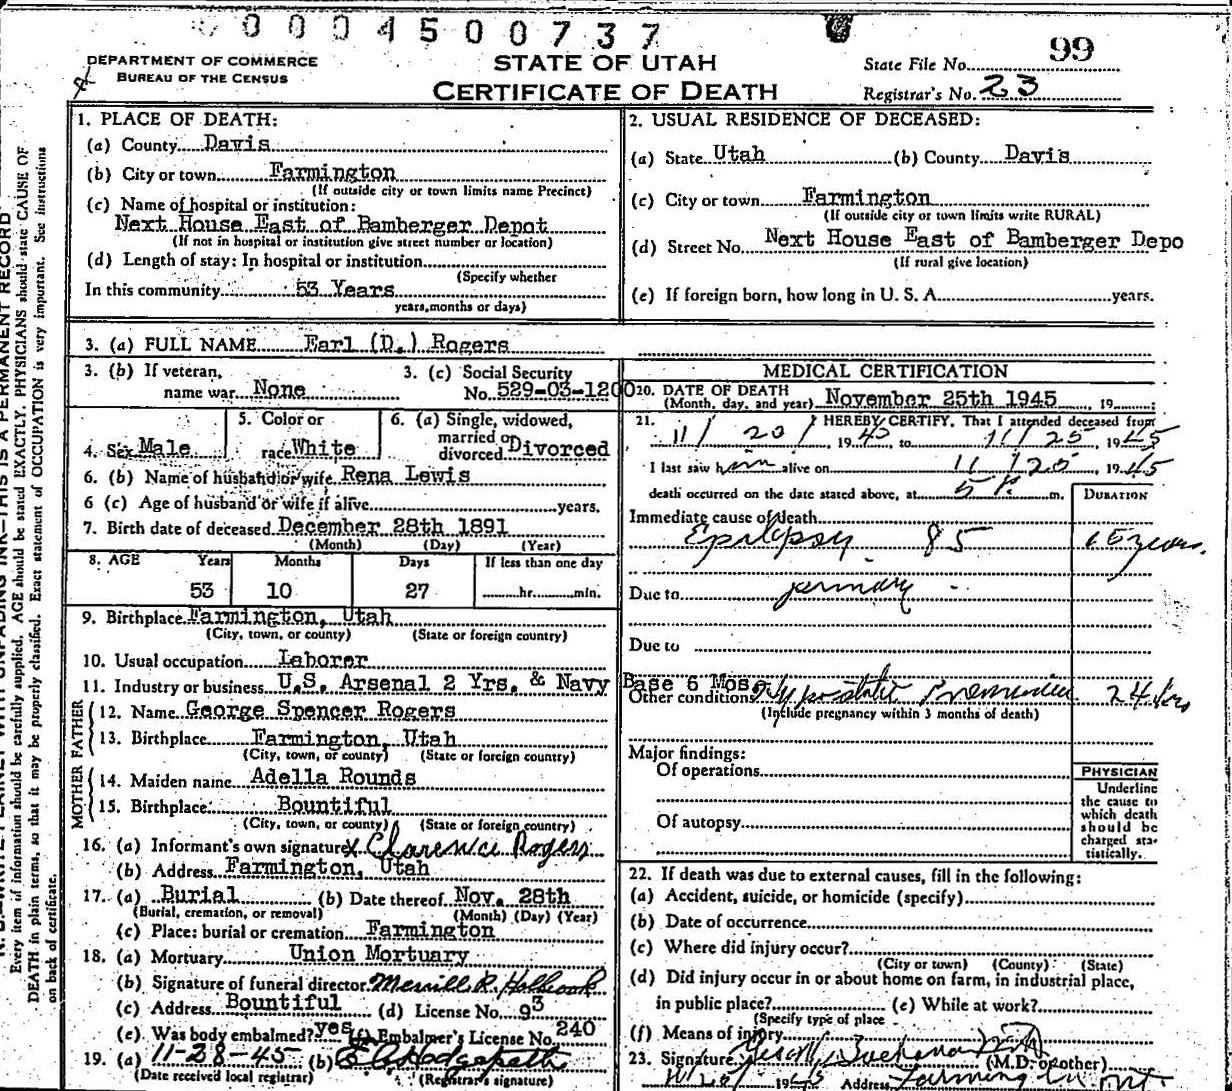 0004500737
DEPARTMENT OF COMMERCE
BUREAU OF THE CENSUS
STATE OF UTAH
CERTIFICATE OF DEATH
State File No. 99
Registrar's No. 23
1. PLACE OF DEATH:
(a) County Davis
(b) City or town Farmington
(If outside city or town limits name Precinct)
(c) Name of hospital or institution:
Next House East of Bamberger Depot
(If not in hospital or institution give street number or location)
(d) Length of stay: In hospital or institution
(Specify whether
In this community 53 Years
years, months or days)
2. USUAL RESIDENCE OF DECEASED:
(a) State Utah (b) County Davis
(c) City or town Farmington
(If outside city or town limits write RURAL)
(d) Street No. Next House East of Bamberger Depo
(If rural give location)
(e) If foreign born, how long in U. S. A. years.
3. (a) FULL NAME Earl (D.) Rogers
3. (b) If veteran, name war None
3. (c) Social Security No. 529-03-1200
4. Sex Male
5. Color or race White
6. (a) Single, widowed, married or divorced Divorced
6. (b) Name of husband or wife Rena Lewis
6 (c) Age of husband or wife if alive years.
7. Birth date of deceased December 28th 1891
(Month) (Day) (Year)
8. AGE Years Months Days If less than one day
53 10 27 hr. min.
9. Birthplace Farmington, Utah
(City, town, or county) (State or foreign country)
10. Usual occupation Laborer
11. Industry or business U.S. Arsenal 2 Yrs. & Navy Base 6 Mos.
FATHER
12. Name George Spencer Rogers
13. Birthplace Farmington, Utah
(City, town, or county) (State or foreign country)
MOTHER
14. Maiden name Adella Rounds
15. Birthplace Bountiful
(City, town, or county) (State or foreign country)
16. (a) Informant's own signature x Clarence Rogers
(b) Address Farmington, Utah
17. (a) Burial (b) Date thereof Nov. 28th
(Burial, cremation, or removal) (Month) (Day) (Year)
(c) Place: burial or cremation Farmington
18. (a) Mortuary Union Mortuary
(b) Signature of funeral director Merrill R. Holbrook
(c) Address Bountiful (d) License No. 93
(e) Was body embalmed? yes (f) Embalmer's License No. 240
19. (a) 11-28-45 (b)
(Date received local registrar) (Registrar's signature)
MEDICAL CERTIFICATION
20. DATE OF DEATH
(Month, day, and year) November 25th 1945, 19 ;
21. I HEREBY CERTIFY, That I attended deceased from
11/20/ 1945 to 11/25, 1945
I last saw him alive on 11/25, 1945
death occurred on the date stated above, at 5 P. m.
DURATION
Immediate cause of death
Epilepsy 85 15 years.
Due to primary
Due to
Other conditions Hypostatic Pneumonia 24 hrs
(Include pregnancy within 3 months of death)
Major findings:
Of operations
Of autopsy
PHYSICIAN
Underline
the cause to
which death
should be
charged sta-
tistically.
22. If death was due to external causes, fill in the following:
(a) Accident, suicide, or homicide (specify)
(b) Date of occurrence
(c) Where did injury occur?
(City or town) (County) (State)
(d) Did injury occur in or about home on farm, in industrial place,
in public place? (e) While at work?
(Specify type of place
(f) Means of injury
23. Signature
(M.D. or other)
1945 Address Farmington
THIS IS A PERMANENT RECORD
Every item if information should be carefully supplied. AGE should be stated EXACTLY. PHYSICIANS should state CAUSE OF
DEATH in plain terms, so that it may be properly classified. Exact statement of OCCUPATION is very important. See instructions
on back of certificate.